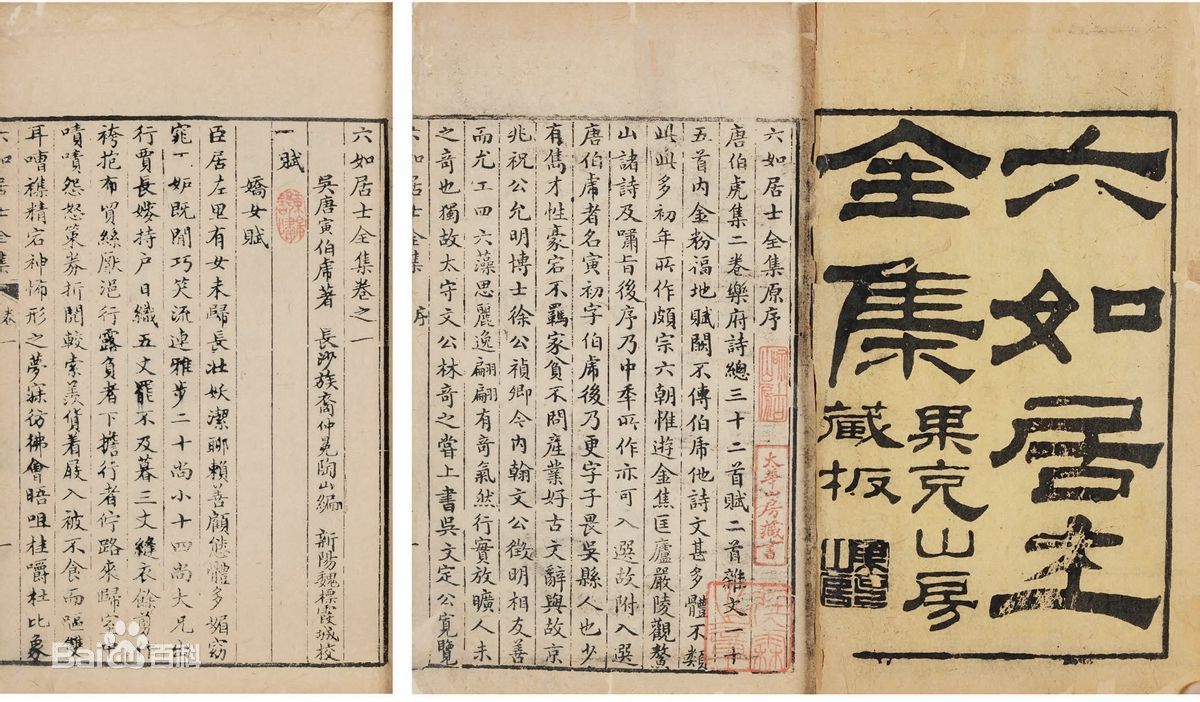 六如居士
全集
果克山房
藏板
六如居士全集原序
唐伯虎集二卷樂府詩總三十二首賦二首雜文一十
五首內金粉福地賦闕不傳伯虎他詩文甚多體不類
此此多初年所作頗宗六朝惟遊金焦匡廬嚴陵觀鰲
山諸詩及嘯旨後序乃中年所作亦可入選故附入選
唐伯虎者名寅初字伯虎後乃更字子畏吳縣人也少
有雋才性豪宕不羈家貧不問產業好古文辭與故京
兆祝公允明博士徐公禎卿今內翰文公徵明相友善
而尤工四六藻思麗逸翩翩有奇氣然行實放曠人未
之奇也獨故太守文公林奇之嘗上書吳文定公寬覽
六如居士全集 序 一
太華山房藏書
六如居士全集卷之一
吳唐寅伯虎著 長沙族裔仲冕陶山編 新陽魏標霞城校
賦
嬌女賦
臣居左里有女未歸長壯妖潔聊賴善顧態體多媚窈
窕丁妬既閒巧笑流連雅步二十尚小十四尚大兄出
行賈長嫂持戶日織五丈罷不及暮三丈縫衣餘剪作
袴抱布貿絲厭浥行露負者下擔行者佇路來歸室中
嘖嘖怨怒策券折閱較索羨貨着屐入被不食而嘔雙
耳嘈襍精宕神怖形之夢寐彷彿會晤咀桂嚼杜比象
六如居士全集 卷一 一
Baidu百科